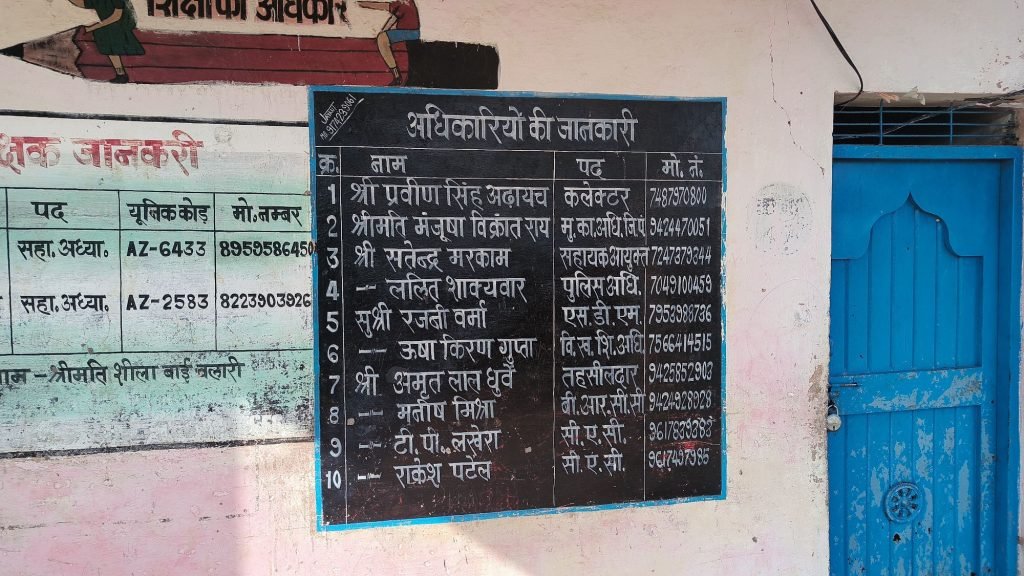 शिक्षा का अधिकार
क्षक जानकरी
पद यूनिककोड़ मो.नम्बर
सहा.अध्या. AZ-6433 895958645
सहा.अध्या. AZ-2583 8223903926
नाम -श्रीमति शीला बाई
अधिकारियों की जानकारी
क्र. नाम पद मो. नं.
1 श्री प्रवीण सिंह अढ़ायच कलेक्टर 7487970800
2 श्रीमति मंजूषा विक्रांत राय मु.का.अधि.जि.पं 9424470051
3 श्री सतेन्द्र मरकाम सहायक आयुक्त 7247379344
4 -- ललित शाक्यवार पुलिस अधि. 7049100459
5 सुश्री रजनी वर्मा एस.डी.एम. 7953988736
6 -- ऊषा किरण गुप्ता वि.ख.शि.अधि. 7566414515
7 श्री अमृत लाल धुर्वे तहसीलदार 9425852903
8 -- मनीष मिश्रा बी.आर.सी.सी 9424928928
9 -- टी.पी. लखेरा सी.ए.सी. 9617539383
10 -- राकेश पटेल सी.ए.सी 9617497985